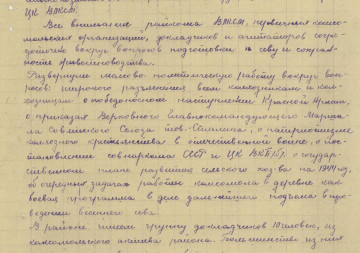 ЦК ВЛКСМ.
Все внимание райкома ВЛКСМ, первичных комсо-
мольских организаций, докладчиков и агитаторов сосре-
доточено вокруг вопросов подготовки к севу и сохран-
ности животноводства.
Развернули массово-политическую работу вокруг воп-
росов: широкого разъяснения всем колхозникам и кол-
хозницам о победоносном наступлении Красной Армии,
о приказах Верховного Главнокомандующего Марша-
ла Советского Союза тов. Сталина, о патриотизме
колхозного крестьянства в отечественной войне, о пос-
тановлении совнаркома СССР и ЦК ВКП(б) о государ-
ственном плане развития сельского хоз-ва на 1944 год,
об очередных задачах работы комсомола в деревне как
боевая программа в деле дальнейшего подъема и про-
ведении весеннего сева.
В районе имеем группу докладчиков 10 человек, из
комсомольского актива района. Большинство из них